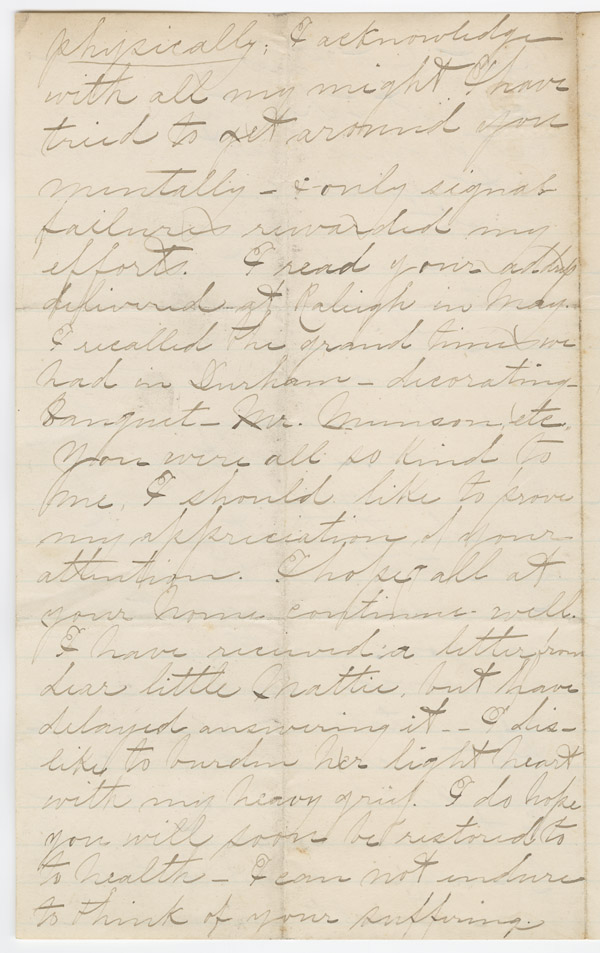 physically; I acknowledge
with all my might I have
tried to get around you
mentally - & only signal
failures rewarded my
efforts. I read your address
delivered at Raleigh in May.
I recalled the grand times we
had in Durham - decorating -
Banquet - Mr. Munson, etc.
You were all so kind to
me, I should like to prove
my appreciation of your
attention. I hope all at
your home continue well.
I have received a letter from
dear little Mattie, but have
delayed answering it -- I dis-
like to burden her light heart
with my heavy grief. I do hope
you will soon be restored to
to health - I can not endure
to think of your suffering.